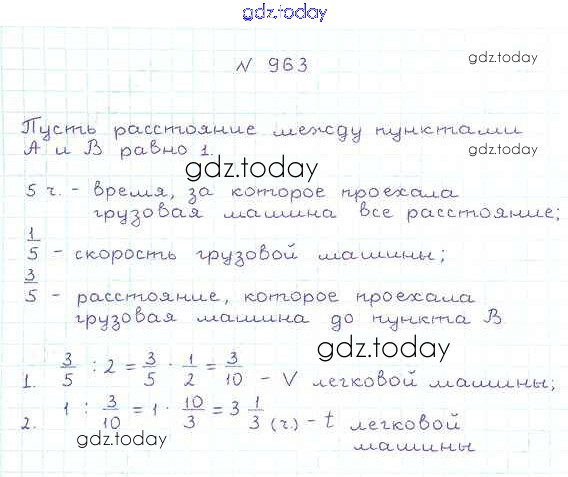 gdz.today
N 963
gdz.today
Пусть расстояние между пунктами
А и В равно 1.
gdz.today
5 ч. - время, за которое проехала
грузовая машина все расстояние;
1/5 - скорость грузовой машины;
3/5 - расстояние, которое проехала
грузовая машина до пункта В
gdz.today
1. 3/5 : 2 = 3/5 · 1/2 = 3/10 - V легковой машины;
2. 1 : 3/10 = 1 · 10/3 = 3 1/3 (ч.) - t легковой
машины
gdz.today